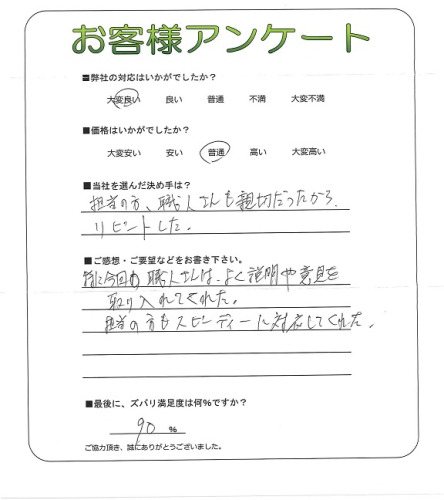 お客様アンケート
■弊社の対応はいかがでしたか?
大変良い 良い 普通 不満 大変不満
■価格はいかがでしたか?
大変安い 安い 普通 高い 大変高い
■当社を選んだ決め手は?
担当の方、職人さんも親切だったから、
リピートした。
■ご感想・ご要望などをお書き下さい。
特に今回の職人さんは、よく説明や意見を
取り入れてくれた。
担当の方もスピーディーに対応してくれた。
■最後に、ズバリ満足度は何%ですか?
90 %
ご協力頂き、誠にありがとうございました。